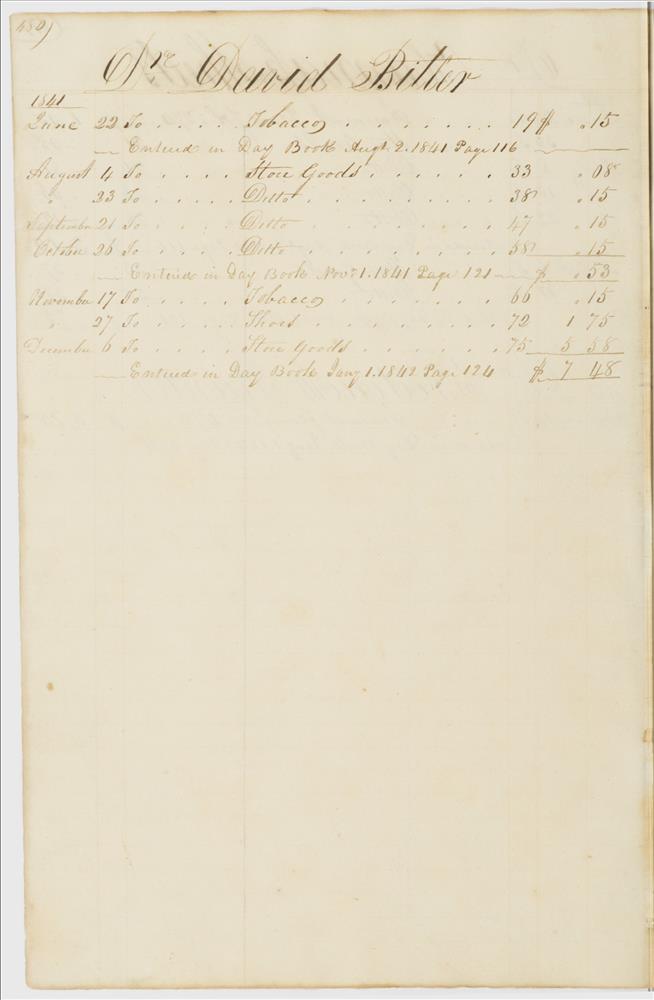 480)
Dre David Bitler
1841
June 22 To . . . . Tobacco . . . . . . . . 19 $ .15
— Entered in Day Book Augt 2. 1841 Page 116 —
August 4 To . . . . Store Goods . . . . . . 33 .08
" 23 To . . . . Ditto . . . . . . . . . 38 .15
September 21 To . . . . Ditto . . . . . . . . . 47 .15
October 26 To . . . . Ditto . . . . . . . . . 58 .15
— Entered in Day Book Novr 1. 1841 Page 121 — $ .53
November 17 To . . . . Tobacco . . . . . . . 66 .15
" 27 To . . . . Shoes . . . . . . . . 72 1 75
December 6 To . . . . Store Goods . . . . . . . 75 5 58
— Entered in Day Book Jany 1. 1842 Page 124 $ 7 48